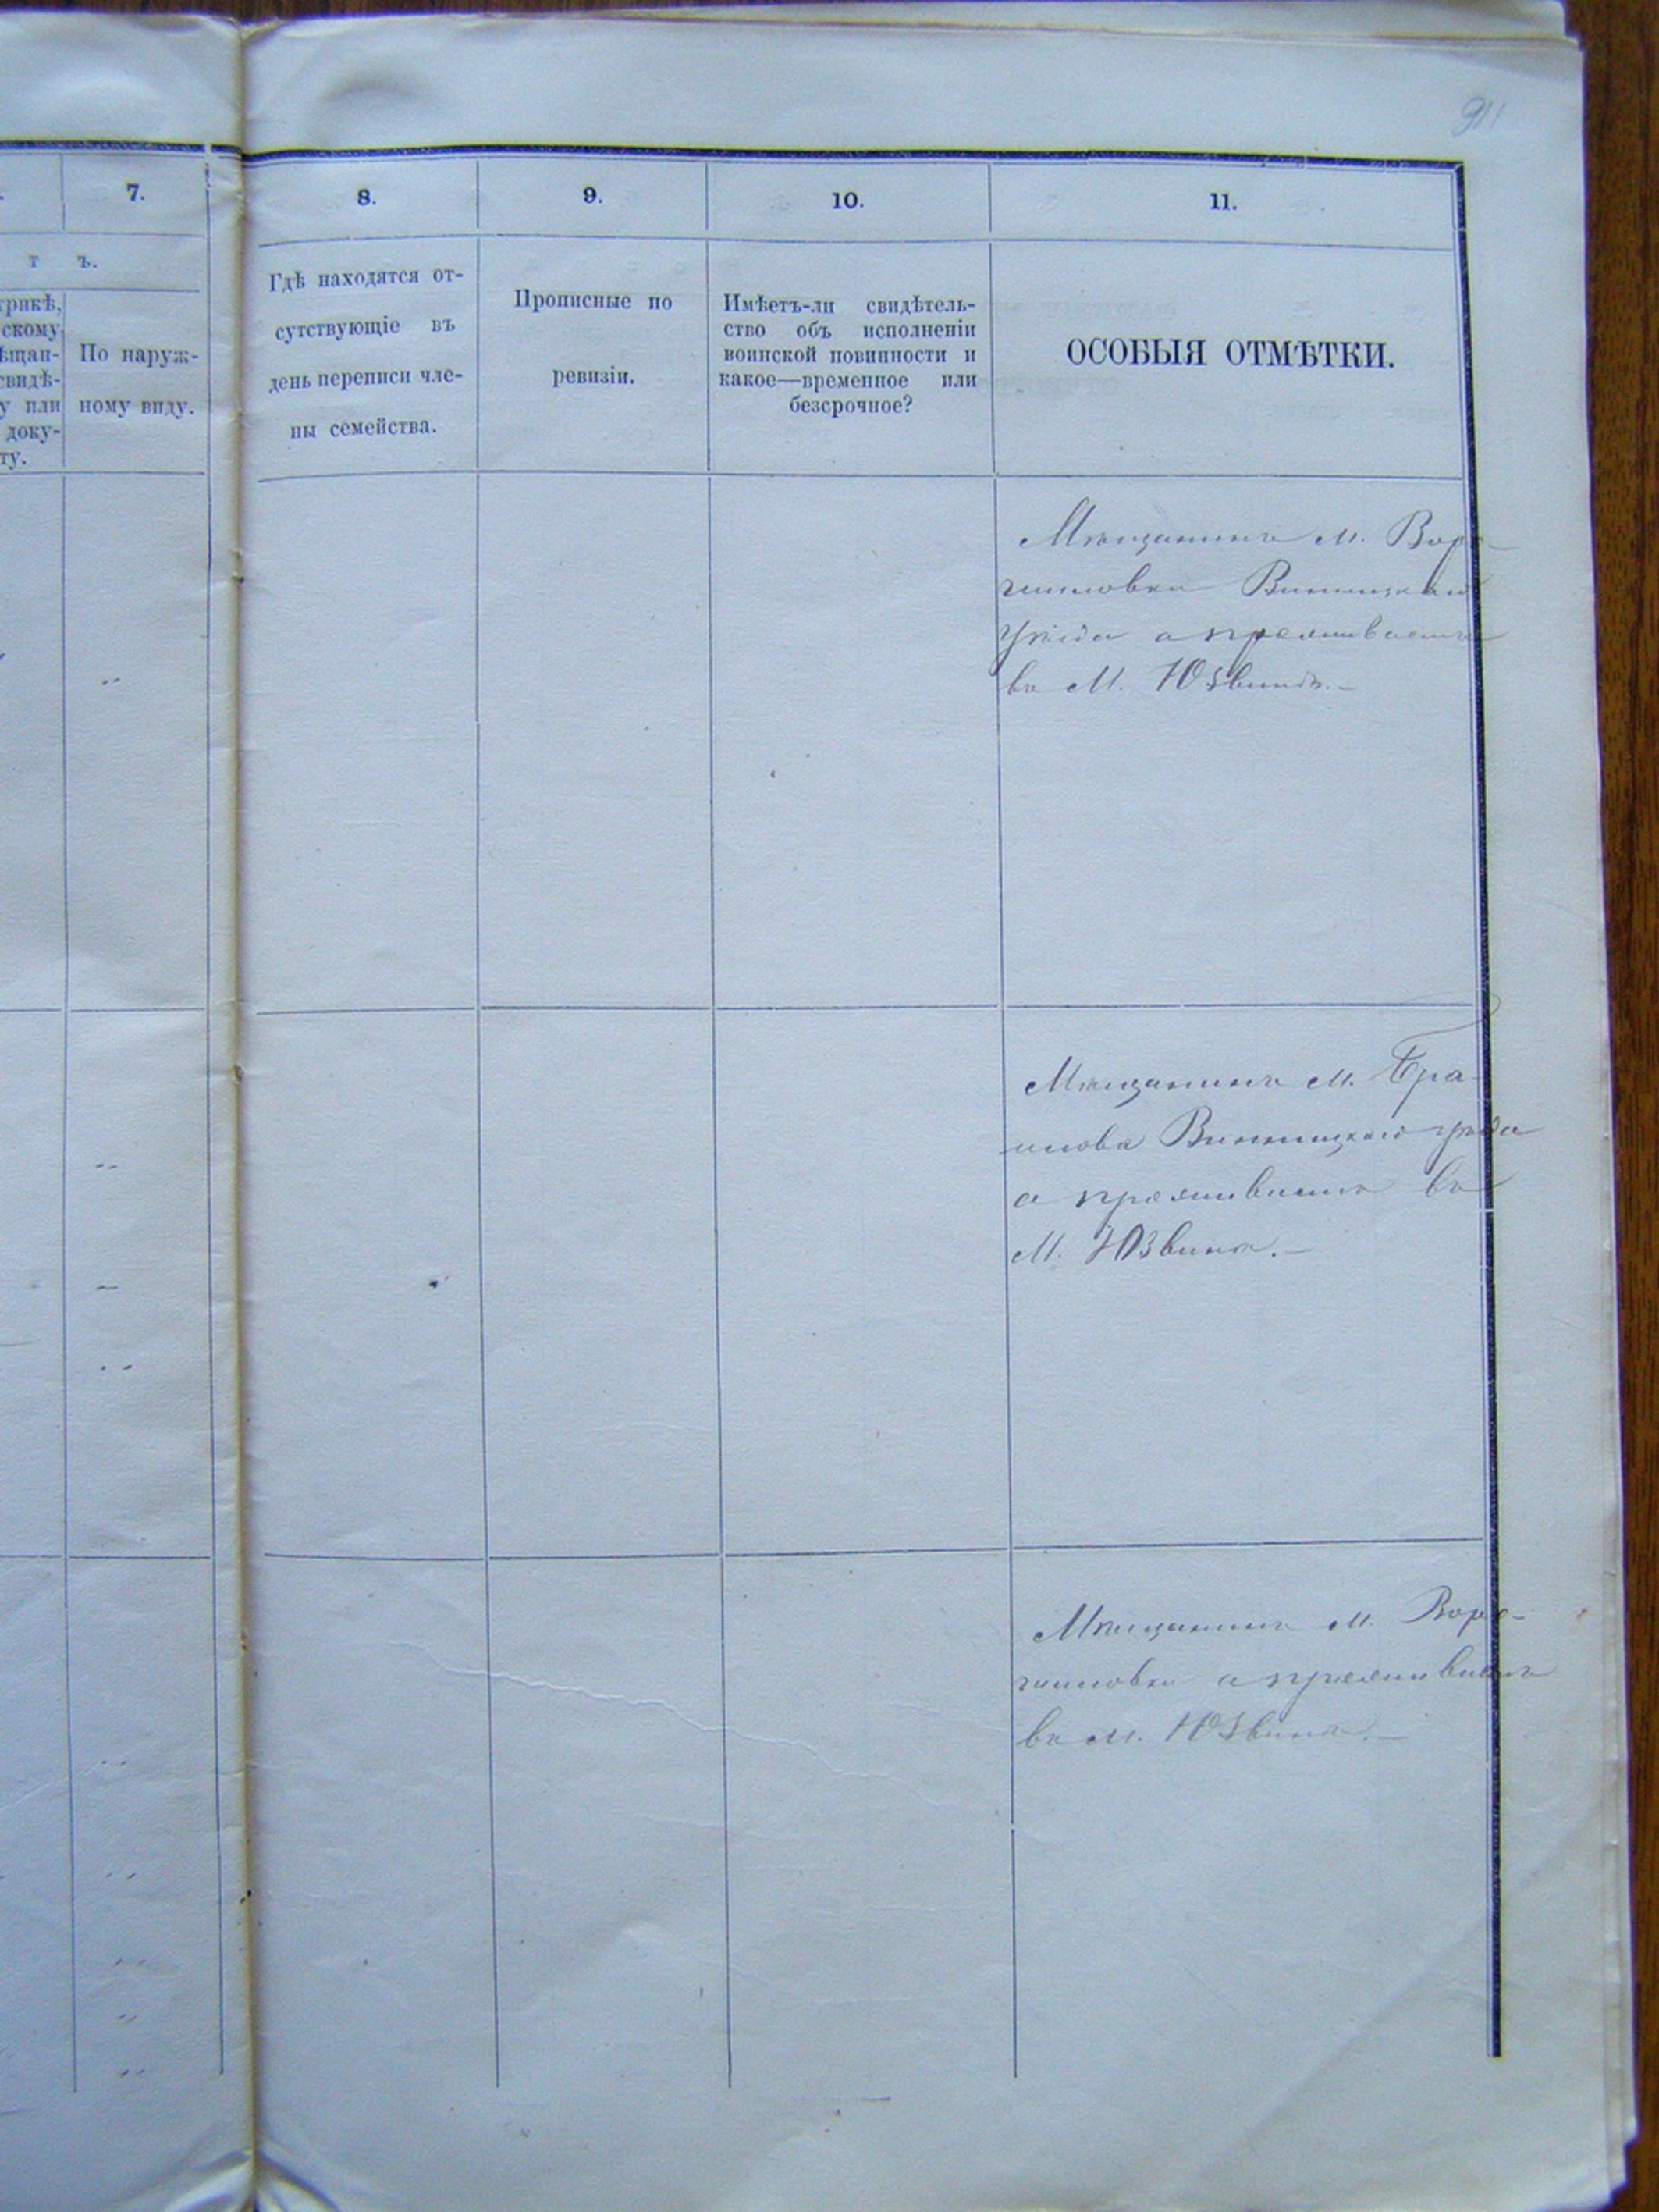 911
7.
8.
9.
10.
11.
т ъ.
трикѣ,
скому,
ѣщан-
свидѣ-
у или
доку-
ту.
По наруж-
ному виду.
Гдѣ находятся от-
сутствующіе въ
день переписи чле-
ны семейства.
Прописные по
ревизіи.
Имѣетъ-ли свидѣтель-
ство объ исполненіи
воинской повинности и
какое—временное или
безсрочное?
ОСОБЫЯ ОТМѢТКИ.
Мѣщанинъ м. Воро-
шиловки Винницкаго
Уѣзда а проживаетъ
въ М. Юзвинѣ.—
Мѣщанинъ м. Бра-
илова Винницкаго уѣзда
а проживаетъ въ
М. Юзвинѣ.—
Мѣщанинъ м. Воро-
шиловки а проживаетъ
въ м. Юзвинѣ.—